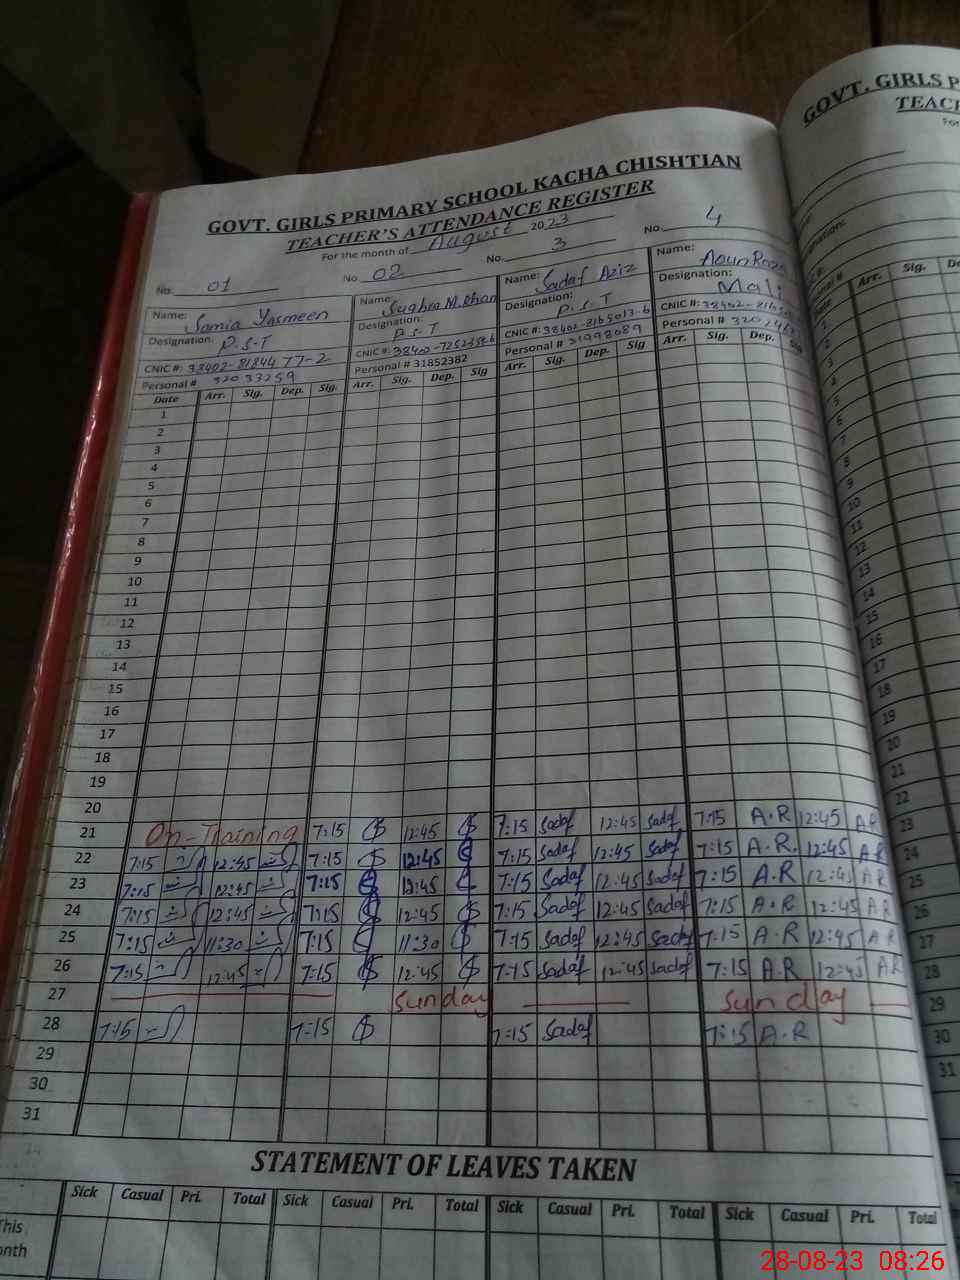 GOVT. GIRLS PRIMARY SCHOOL KACHA CHISHTIAN
TEACHER'S ATTENDANCE REGISTER
For the month of August 2023
No. 01 No. 02 No. 3 No. 4
Name: Samia Yasmeen Name: Sughra M. Name: Sadaf Aziz Name: Aoun
Designation: P.S.T Designation: P.S.T Designation: P.S.T Designation: Mali
CNIC #: CNIC #: CNIC #: CNIC #:
Personal # 32033259 Personal # 31852382 Personal # 31998089 Personal #
Date Arr. Sig. Dep. Sig. Arr. Sig. Dep. Sig Arr. Sig. Dep. Sig. Arr. Sig. Dep. Sig
1
2
3
4
5
6
7
8
9
10
11
12
13
14
15
16
17
18
19
20
21 On-Training 7:15 12:45 7:15 Sadaf 12:45 Sadaf 7:15 A.R 12:45 AR
22 7:15 12:45 7:15 12:45 7:15 Sadaf 12:45 Sadaf 7:15 A.R. 12:45 AR
23 7:15 12:45 7:15 12:45 7:15 Sadaf 12:45 Sadaf 7:15 A.R 12:45 AR
24 7:15 12:45 7:15 12:45 7:15 Sadaf 12:45 Sadaf 7:15 A.R 12:45 AR
25 7:15 11:30 7:15 11:30 7:15 Sadaf 12:45 Sadaf 7:15 A.R 12:45 AR
26 7:15 12:45 7:15 12:45 7:15 Sadaf 12:45 Sadaf 7:15 A.R 12:45 AR
27 Sunday Sunday
28 7:15 7:15 7:15 Sadaf 7:15 A.R
29
30
31
STATEMENT OF LEAVES TAKEN
Sick Casual Pri. Total Sick Casual Pri. Total Sick Casual Pri. Total Sick Casual Pri. Total
GOVT. GIRLS
Arr. Sig.
1
2
3
4
5
6
7
8
9
10
11
12
13
14
15
16
17
18
19
20
21
22
23
24
25
26
27
28
29
30
31
28-08-23 08:26